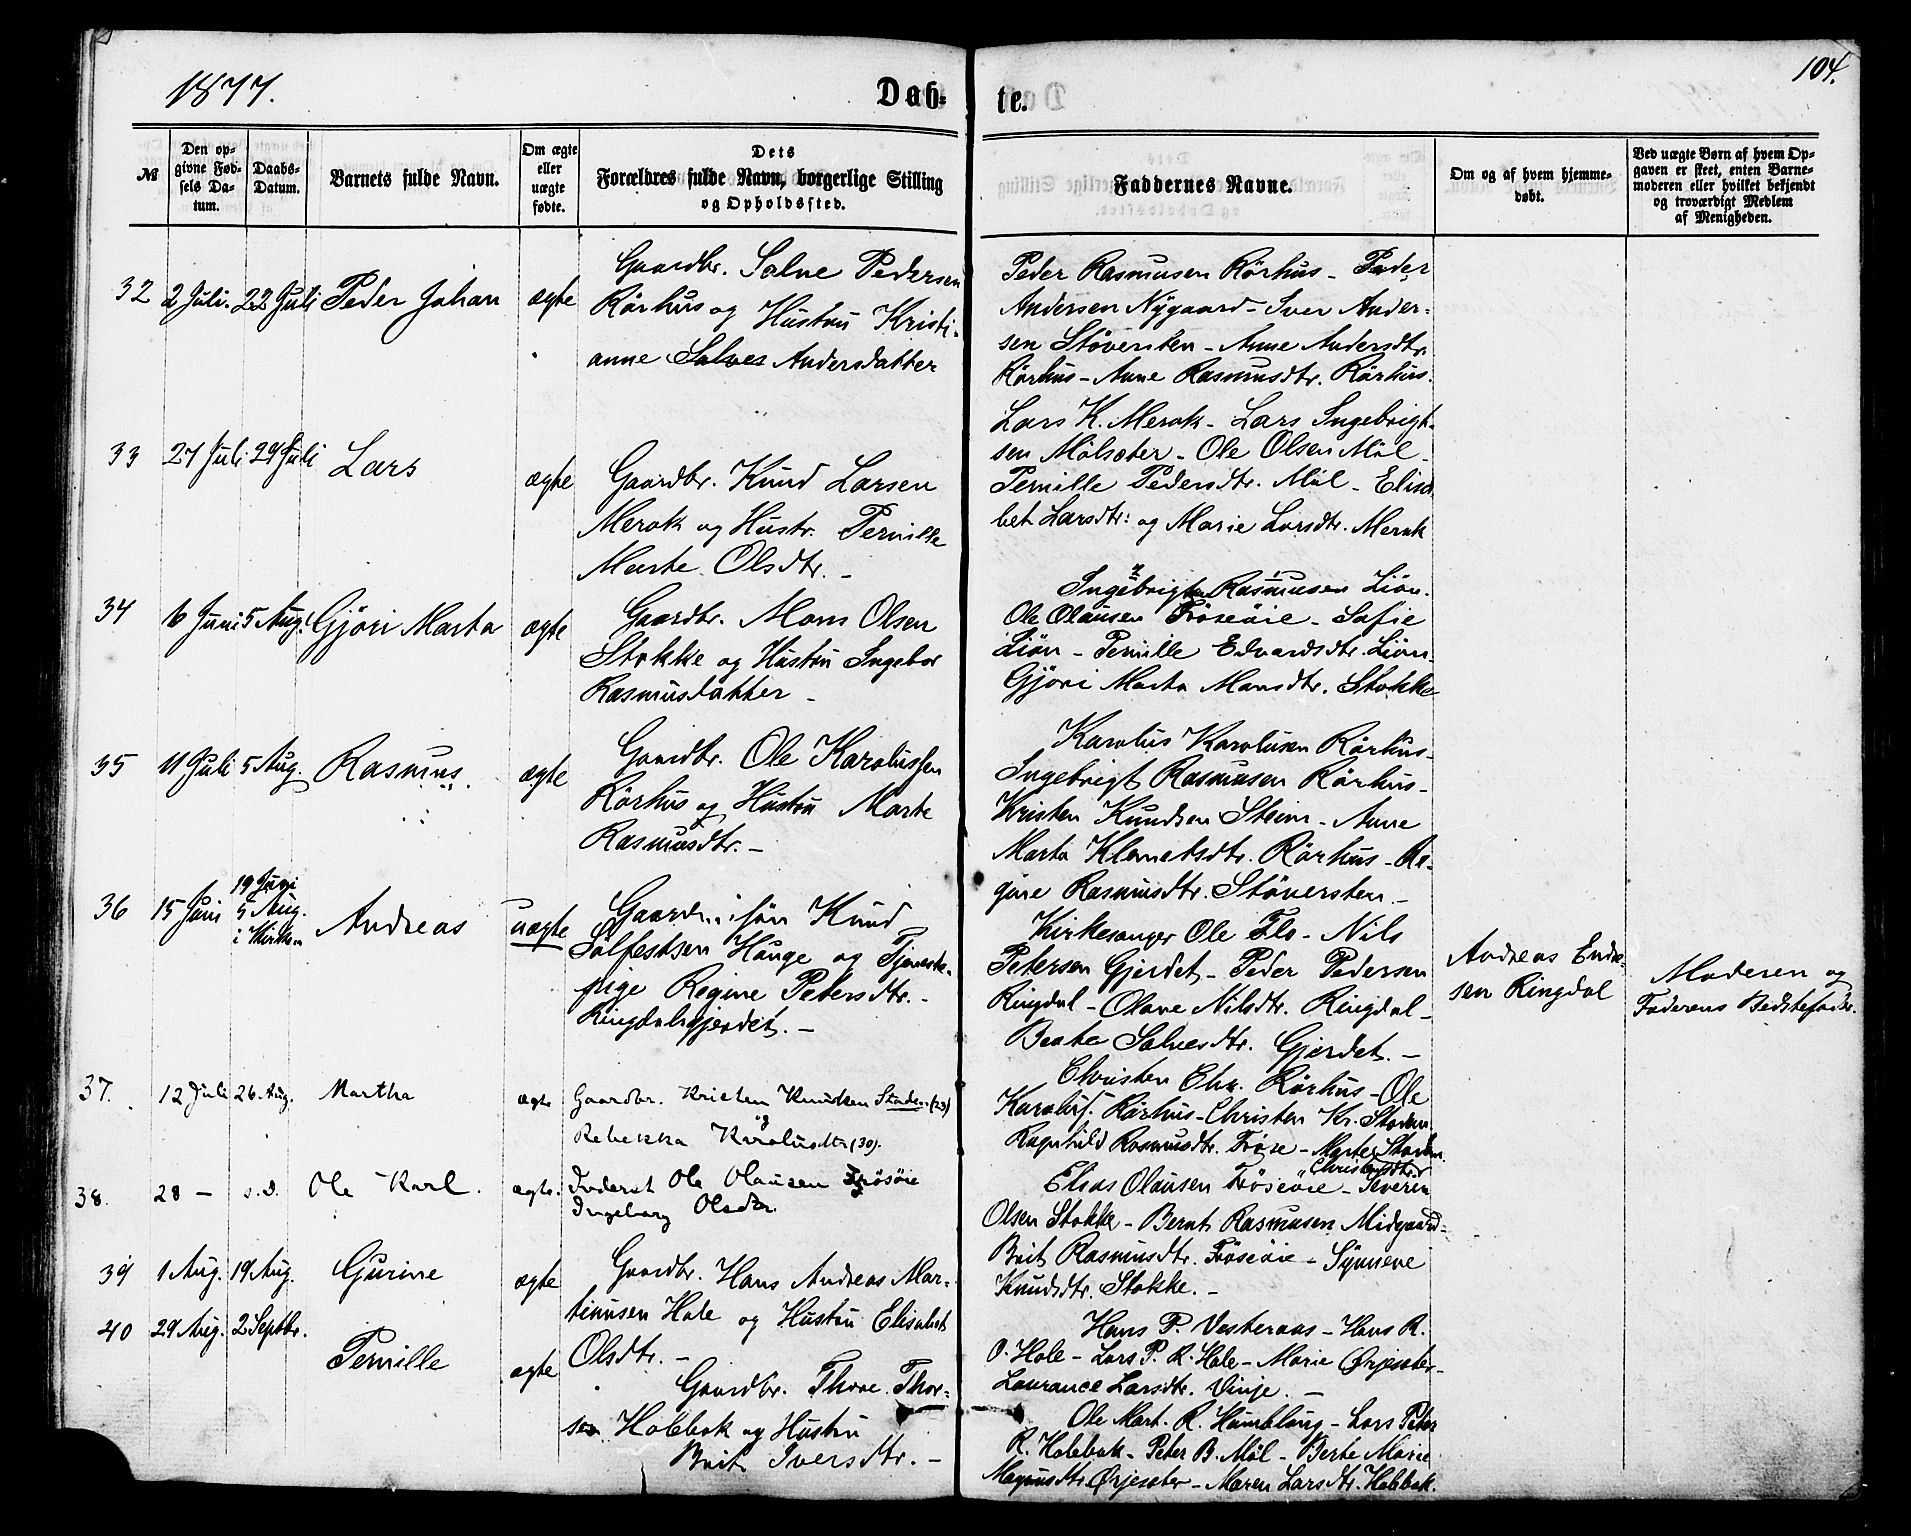 1877.
Døb-
te.
104.
№
Den op-
givne Fød-
sels Da-
tum.
Daabs-
Datum.
Barnets fulde Navn.
Om ægte
eller
uægte
fødte.
Dets
Forældres fulde Navn, borgerlige Stilling
og Opholdssted.
Faddernes Navne.
Om og af hvem hjemme-
døbt.
Ved uægte Børn af hvem Op-
gaven er skeet, enten Barne-
moderen eller hvilket bekjendt
og troværdigt Medlem
af Menigheden.
32 2 Juli. 22 Juli Peder Johan ægte
Gaardbr. Salve Pedersen
Rörhus og Hustru Kristi-
anne Salves Andersdatter
Peder Rasmusen Rörhus - Peder
Andersen Nygaard - Iver Ander-
sen Stöversten - Anne Andersdtr.
Rörhus - Anne Rasmusdtr. Rörhus.
33 27 Juli 29 Juli Lars ægte
Gaardbr. Knud Larsen
Merok og Hustr. Pernille
Marte Olsdtr. -
Lars K. Merok - Lars Ingebrigt-
sen Mölsæter - Ole Olsen Möl -
Pernille Pedersdtr. Möl - Elisa
bet Larsdtr: og Marie Larsdtr. Merok
34 6 Juni 5 Aug. Gjöri Marta ægte
Gaardbr. Mons Olsen
Stokke og Hustru Ingebor
Rasmusdatter -
Ingebrigt Rasmusen Liön.
Ole Olausen Fröseöie - Sofie
Liön - Pernille Edvardsdtr. Liön -
Gjöri Marta Monsdtr. Stokke
35 11 Juli 5 Aug. Rasmus. ægte
Gaardbr. Ole Karolussen
Rörhus og Hustru Marte
Rasmusdtr. -
Karolus Karolusen Rörhus -
Ingebrigt Rasmusen Rörhus -
Kristen Knudsen Steim - Anne
Marta Klemetsdtr. Rörhus - Re-
gine Rasmusdtr. Stöversten -
36 15 Juni 19 Juni
5 Aug.
i Kirken
Andreas uægte
Gaardm. sön Knud
Sölfestsen Hauge og Tjeneste-
pige Regine Petersdtr. -
Ringdalsgjerdet. -
Kirkesanger Ole Flo - Nils
Petersen Gjerdet - Peder Pedersen
Ringdal - Olave Nilsdtr. Ringdal -
Beate Salvesdtr. Gjerdet. -
Andreas Endre-
sen Ringdal
Moderen og
Faderens Bedstefader.
37. 12 Juli 26 Aug. Martha ægte
Gaardbr. Kristen Knudsen (23)
og
Rebekka Karolusdtr (30).
Christen Rörhus - Ole
Karolus. Rörhus - Christen Kr. Stadem
Ragnhild Rasmusdtr. Fröse - Marte
Christensdtr
38. 28 - s.D. Ole Karl. ægte.
Inderst Ole Olausen Frösöie
Ingeborg Olsdtr.
Elias Olausen Fröseöie - Severin
Olsen Stokke - Bernt Rasmusen Midgaard -
Brit Rasmusdtr. Fröseöie - Synneve
Knudsdtr. Stokke. -
39 1 Aug. 19 Aug. Gurine ægte
Gaardbr. Hans Andreas Mar-
tinusen Hole og Hustru Elisabet
Olsdtr. -
Hans P. Vesteraas - Hans R.
O. Hole - Lars P. R. Hole - Marie Ørjesæter -
Laurance Larsdtr. Vinje. -
40 29 Aug. 2 Septbr. Pernille ægte
Gaardbr. Thore Thor-
sen Holebak og Hustru
Brit Iversdtr. -
Ole Mart. R. Humblung - Lars Peter
R. Holebak - Peter B. Möl - Berte Marie
Magnusdtr. Ørjesæter - Maren Larsdtr. Holebak.